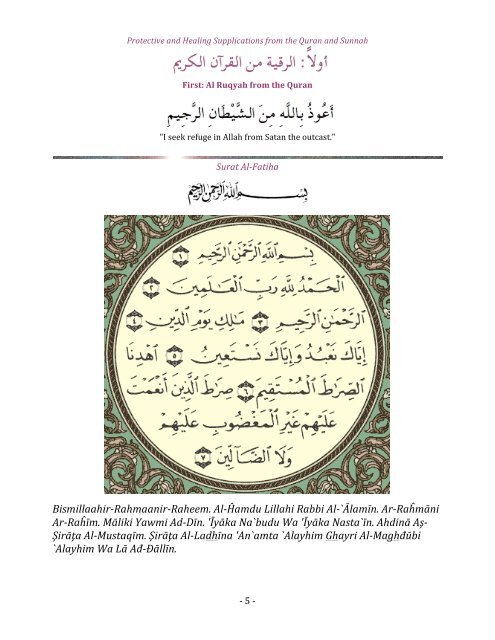 Protective and Healing Supplications from the Quran and Sunnah
أولاً: الرقية من القرآن الكريم
First: Al Ruqyah from the Quran
أَعُوذُ بِاللَّهِ مِنَ الشَّيْطَانِ الرَّجِيمِ
"I seek refuge in Allah from Satan the outcast."
Surat Al-Fatiha
بِسْمِ اللهِ الرَّحْمٰنِ الرَّحِيمِ
بِسْمِ ٱللَّهِ ٱلرَّحْمَٰنِ ٱلرَّحِيمِ ١
ٱلْحَمْدُ لِلَّهِ رَبِّ ٱلْعَٰلَمِينَ ٢
ٱلرَّحْمَٰنِ ٱلرَّحِيمِ ٣ مَٰلِكِ يَوْمِ ٱلدِّينِ ٤
إِيَّاكَ نَعْبُدُ وَإِيَّاكَ نَسْتَعِينُ ٥ ٱهْدِنَا
ٱلصِّرَٰطَ ٱلْمُسْتَقِيمَ ٦ صِرَٰطَ ٱلَّذِينَ أَنْعَمْتَ
عَلَيْهِمْ غَيْرِ ٱلْمَغْضُوبِ عَلَيْهِمْ
وَلَا ٱلضَّآلِّينَ ٧
Bismillaahir-Rahmaanir-Raheem. Al-Ĥamdu Lillahi Rabbi Al-`Ālamīn. Ar-Raĥmāni
Ar-Raĥīm. Māliki Yawmi Ad-Dīn. 'Īyāka Na`budu Wa 'Īyāka Nasta`īn. Ahdinā Aş-
Şirāţa Al-Mustaqīm. Şirāţa Al-Ladhīna 'An`amta `Alayhim Ghayri Al-Maghđūbi
`Alayhim Wa Lā Ađ-Đāllīn.
- 5 -